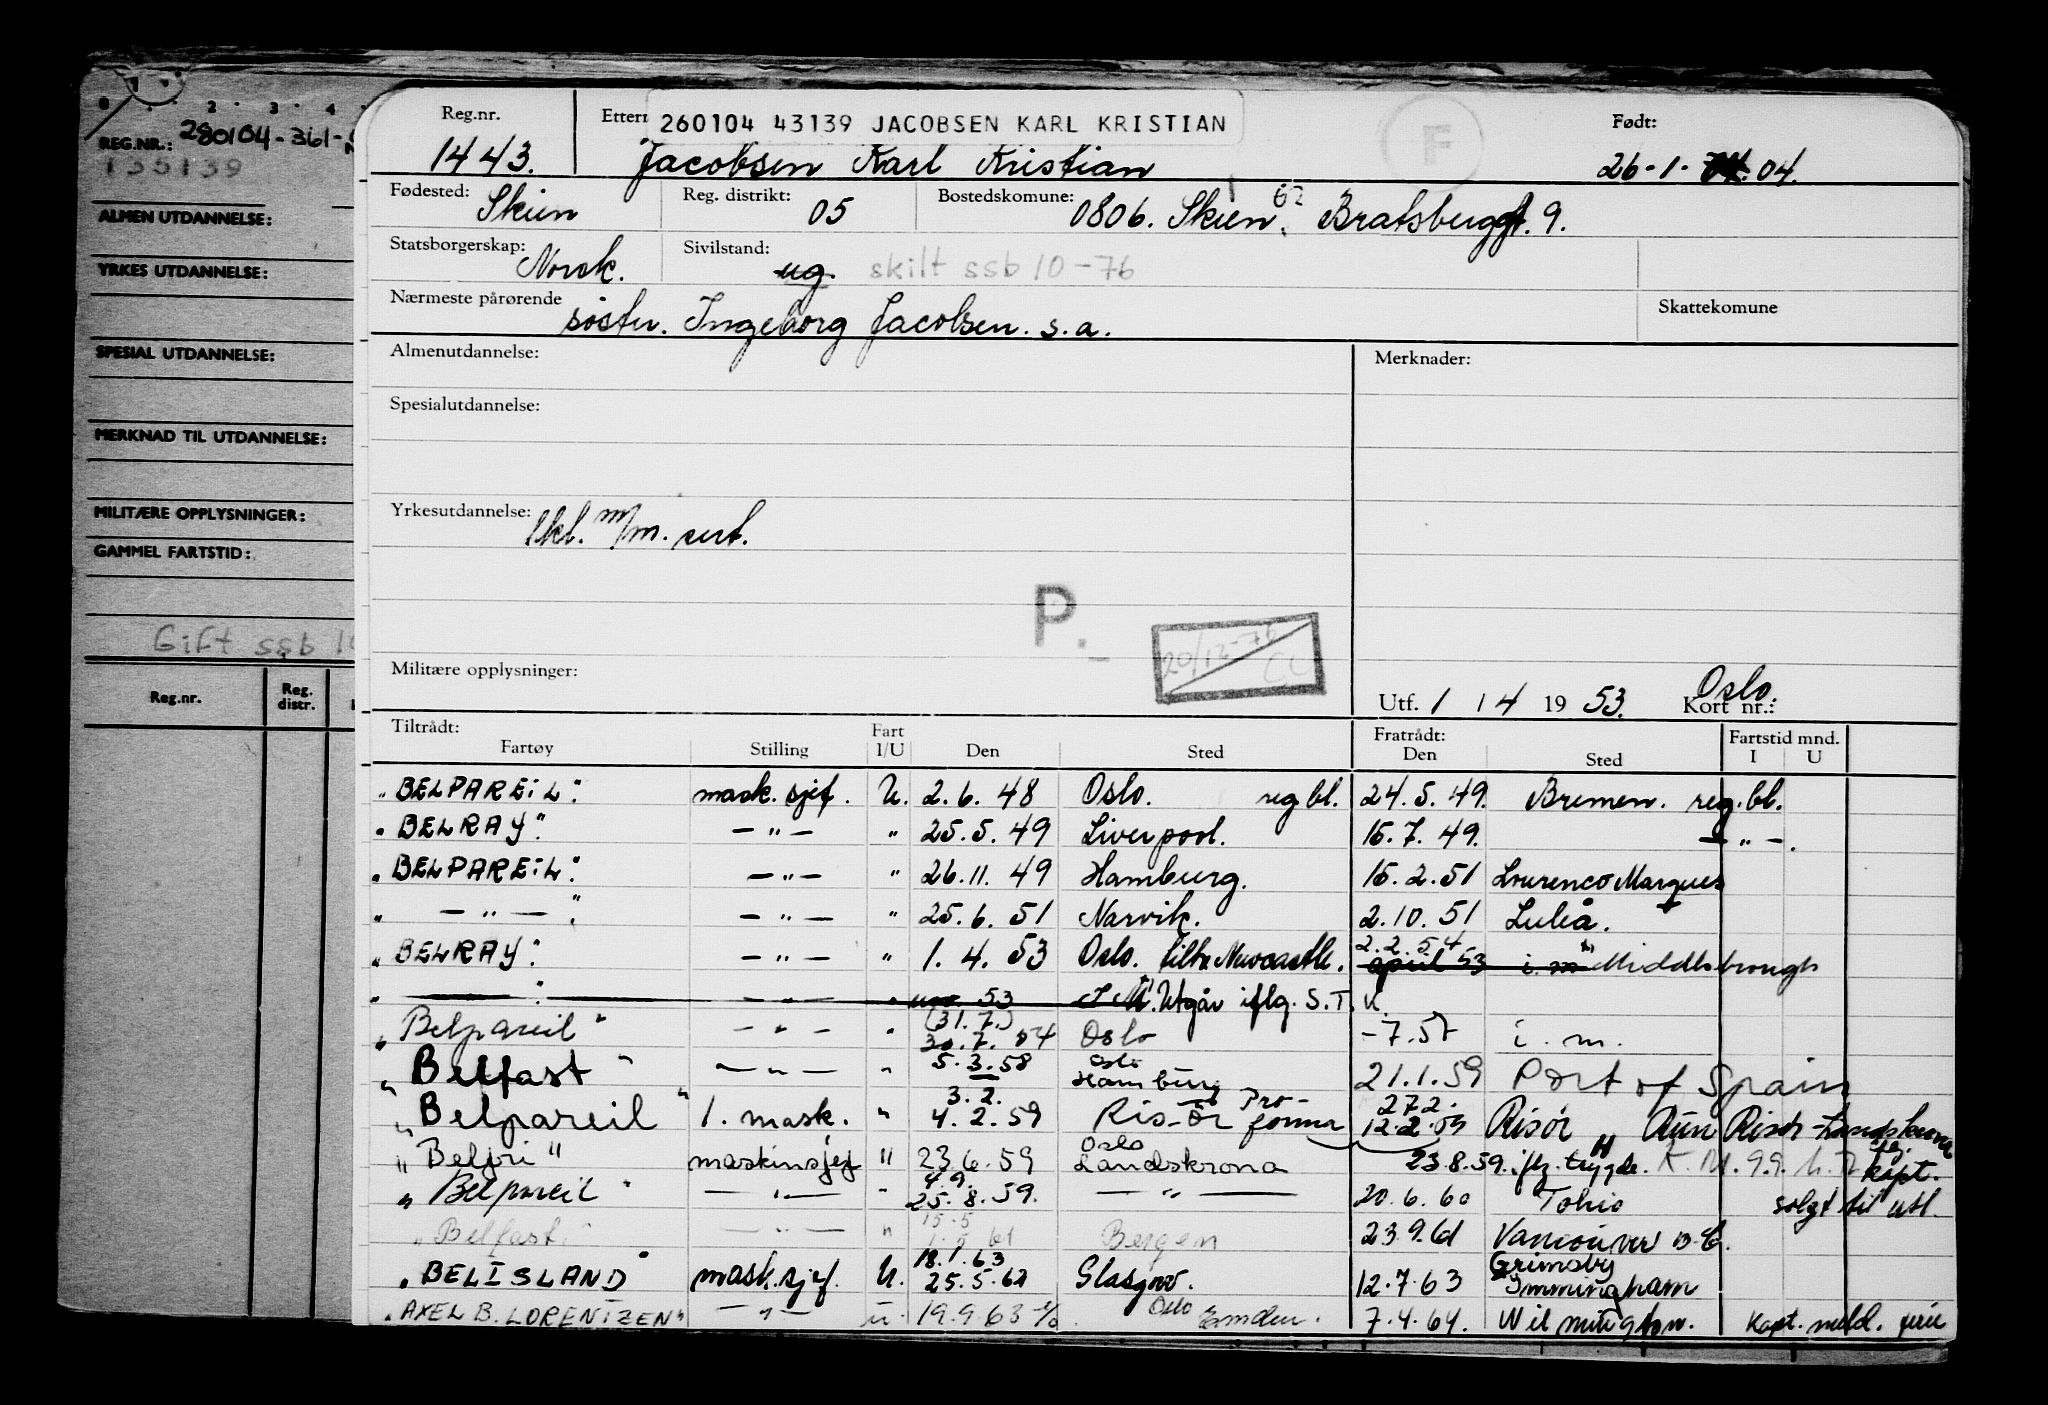 0 2 3 4
REG.NR.: 280104-361-
135139
ALMEN UTDANNELSE:
YRKES UTDANNELSE:
SPESIAL UTDANNELSE:
MERKNAD TIL UTDANNELSE:
MILITÆRE OPPLYSNINGER:
GAMMEL FARTSTID:
Gift ssb 10
Reg.nr. Reg. distr.
Reg.nr. 260104 43139 JACOBSEN KARL KRISTIAN F Født:
1443. Jacobsen Karl Kristian 26-1-04.
Fødested: Skien Reg. distrikt: 05 Bostedskomune: 0806. Skien. 62 Bratsberggt. 9.
Statsborgerskap: Norsk. Sivilstand: ug. skilt ssb 10-76
Nærmeste pårørende søster. Ingeborg Jacobsen. s.a. Skattekomune
Almenutdannelse: Merknader:
Spesialutdannelse:
Yrkesutdannelse: 1kl. m/m. sert.
P.
20/12-76 CL
Militære opplysninger:
Utf. 1 / 4 19 53. Oslo. Kort nr.:
Tiltrådt: Fratrådt: Fartstid mnd.
Fartøy Stilling Fart I/U Den Sted Den Sted I U
"BELPAREIL". mask. sjef. U. 2.6.48 Oslo. reg bl. 24.5.49. Bremen. reg. bl.
"BELRAY". — " — " 25.5.49 Liverpool. 15.7.49. — " —.
"BELPAREIL". — " — " 26.11.49 Hamburg. 15.2.51 Lourenco Marques
" — " — ". — " — " 25.6.51 Narvik. 2.10.51 Luleå.
"BELRAY". — " — " 1.4.53 Oslo. tiltr Newcastle. 2.2.54 april 53 i.m Middlesbrough
" ——— ". — " — " 53 I M. Utgår iflg. S.T.K.
"Belpareil" — " — " (31.7.) 30.7.54 Oslo -7.57 i.m.
"Belfast" — " — " 5.3.58 Oslo Hamburg 21.1.59 Port of Spain
"Belpareil" 1. mask. " 3.2. 4.2.59 Risør Pro-forma 27.2. 12.2.59 Risør Aun Risør-Landskrona
"Belfri" maskinsjef " 23.6.59 Oslo Landskrona 23.8.59. iflg. trygde. kapt.
"Belpareil" — " — " 4.9. 25.8.59. — " — 20.6.60 Tokio solgt til utl.
"Belfast" — " — " 15.5 61 Bergen 23.9.61 Vancouver B.C.
"BELISLAND" mask. sjef. U. 18.1.63 25.5.62 Glasgow. 12.7.63 Grimsby Immingham
"AXEL B. LORENTZEN" — " — u. 19.9.63 Oslo Emden. 7.4.64. Wilmington. Kapt. meld. ferie